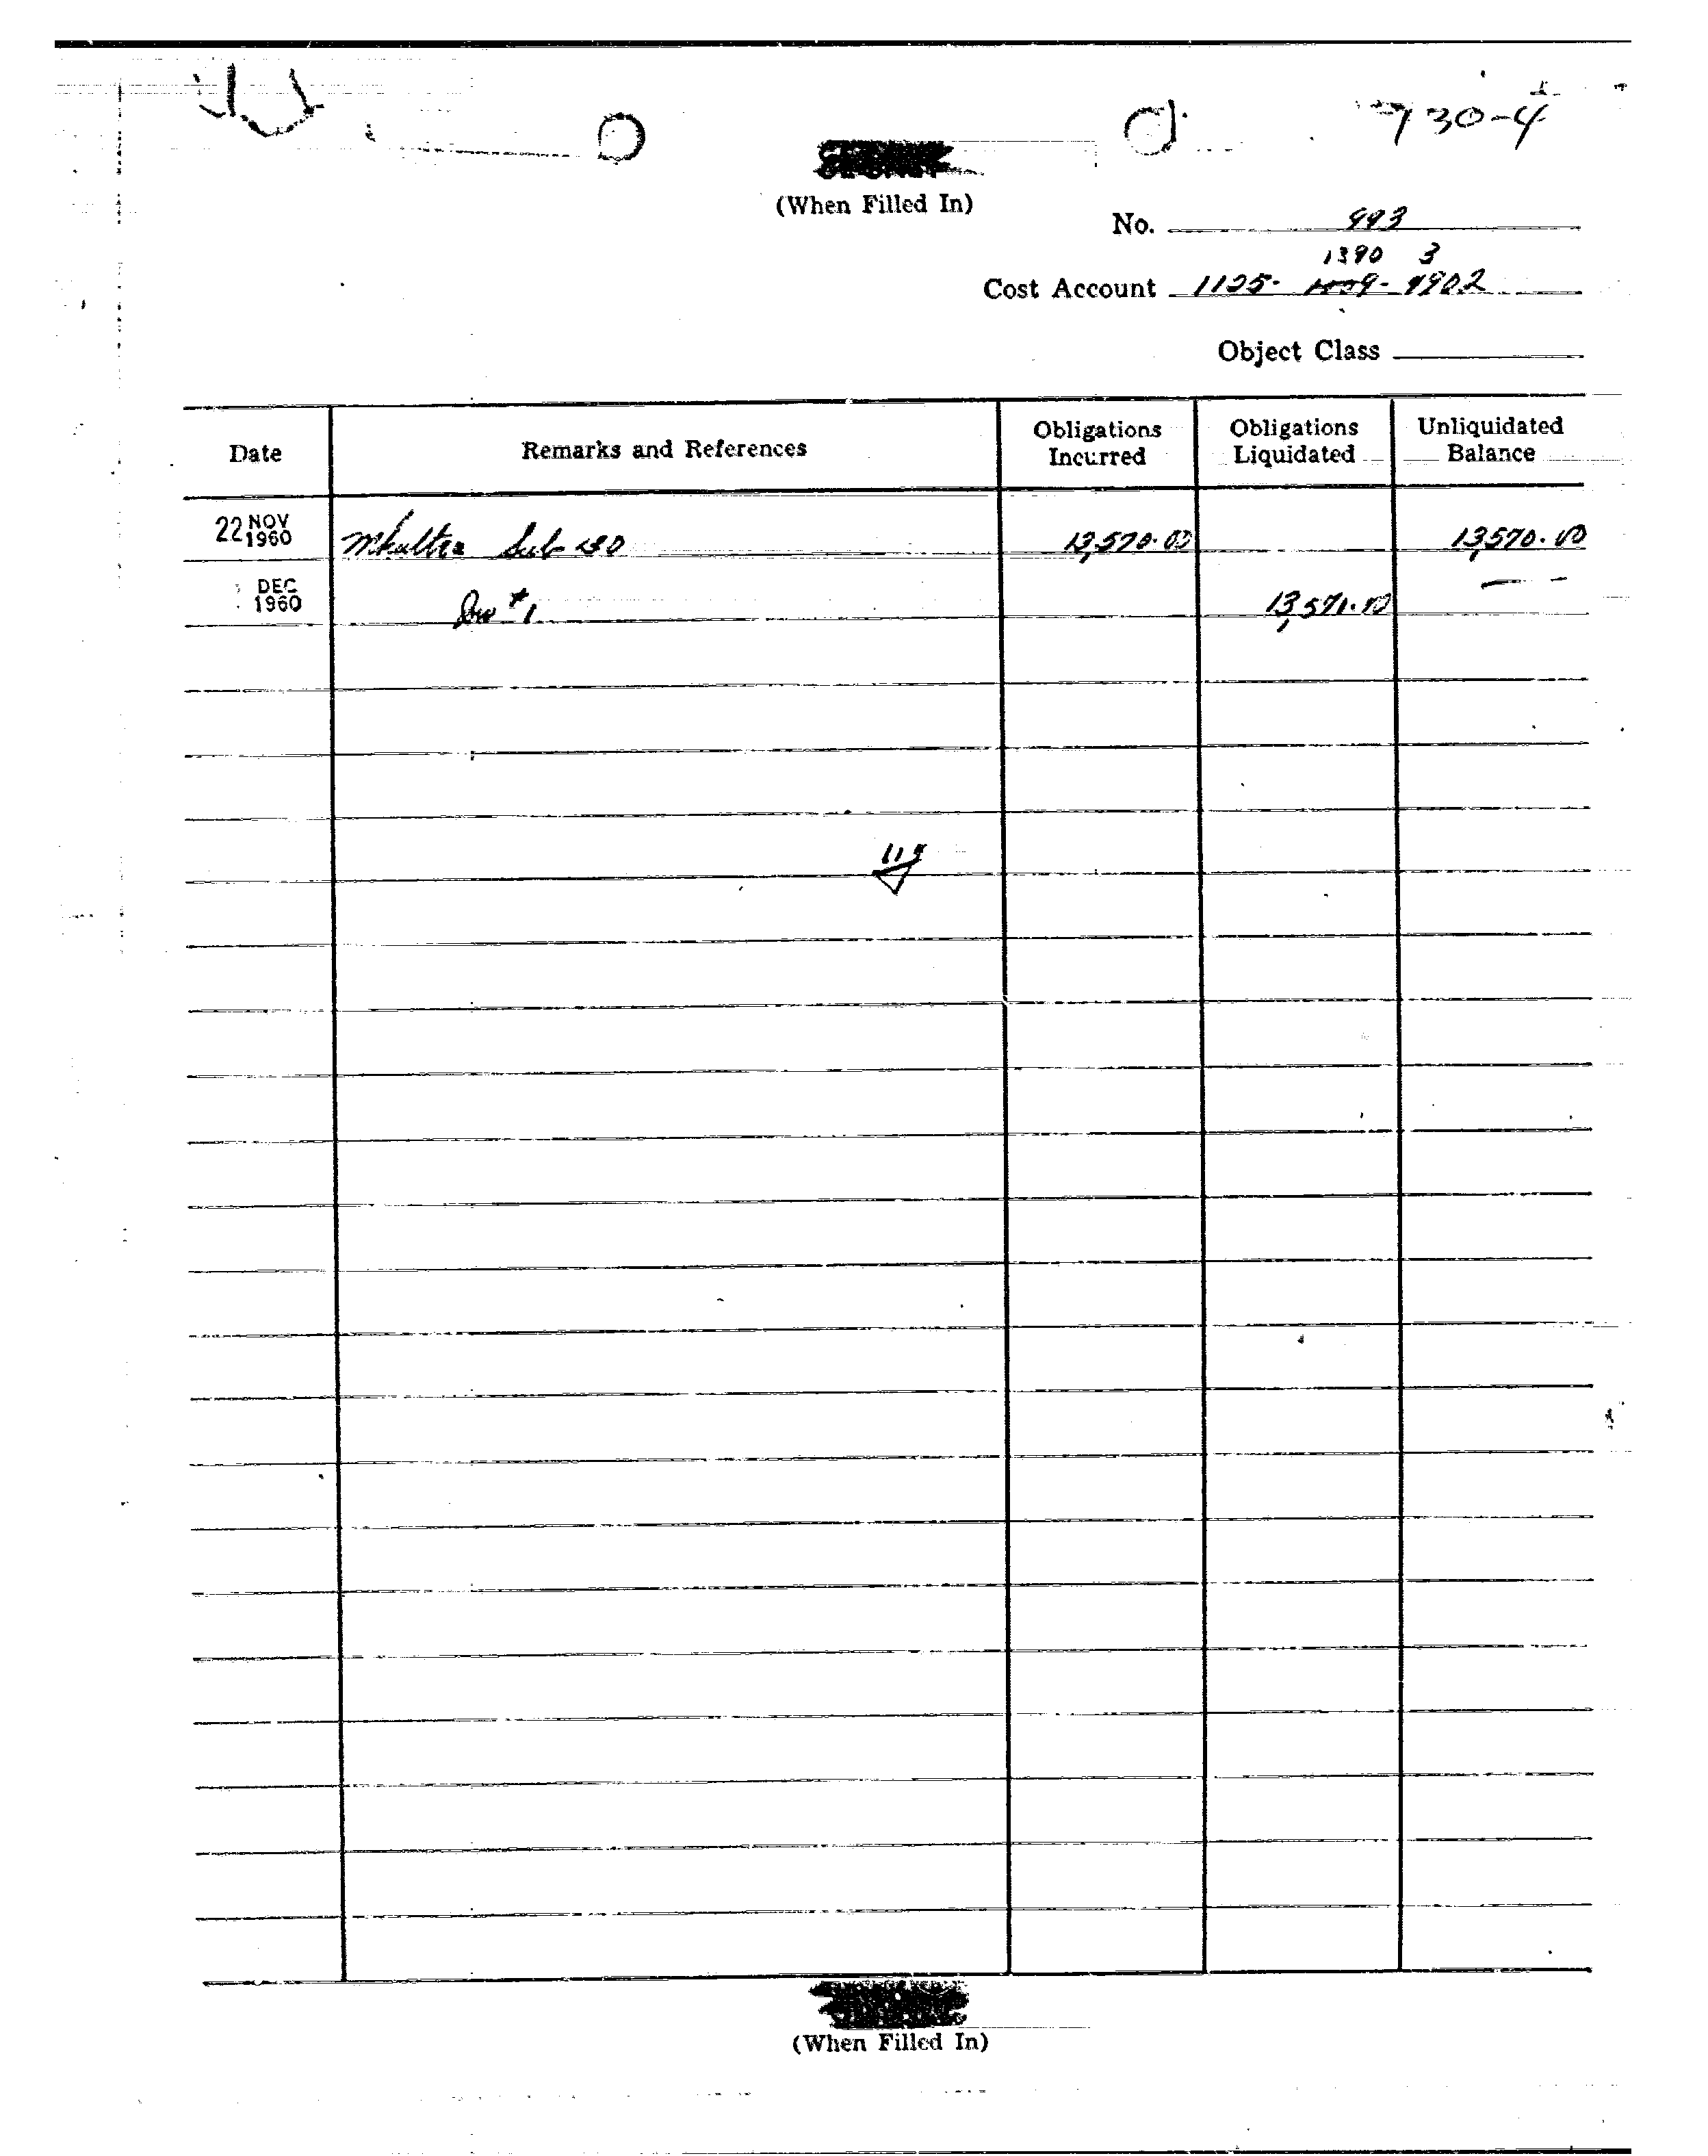 130-4
(When Filled In)
No. 493
1390 3
Cost Account 1125- 1009- 4902
Object Class
Date Remarks and References Obligations Incurred Obligations Liquidated Unliquidated Balance
22 NOV 1960 Mkultra Sub 130 13,570.00 13,570.00
DEC 1960 Inv #1 13,570.00 —
(When Filled In)